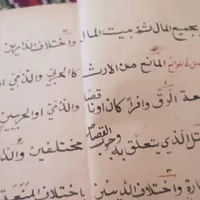 بجميع المال ثم بيت المال واختلاف الدارين
فصل في الموانع المانع من الارث كالحربي والذمي او
عة الرق وافرا كان او ناقصا والذمي او الحربيين
تل الذي يتعلق به وجوب القصاص مختلفين والد
رة واختلاف الدينين باختلاف المنعة